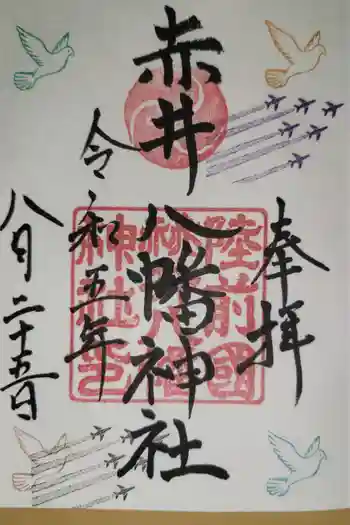 奉拝
赤井
八幡神社
令和五年
八月二十五日
陸前國
神社印